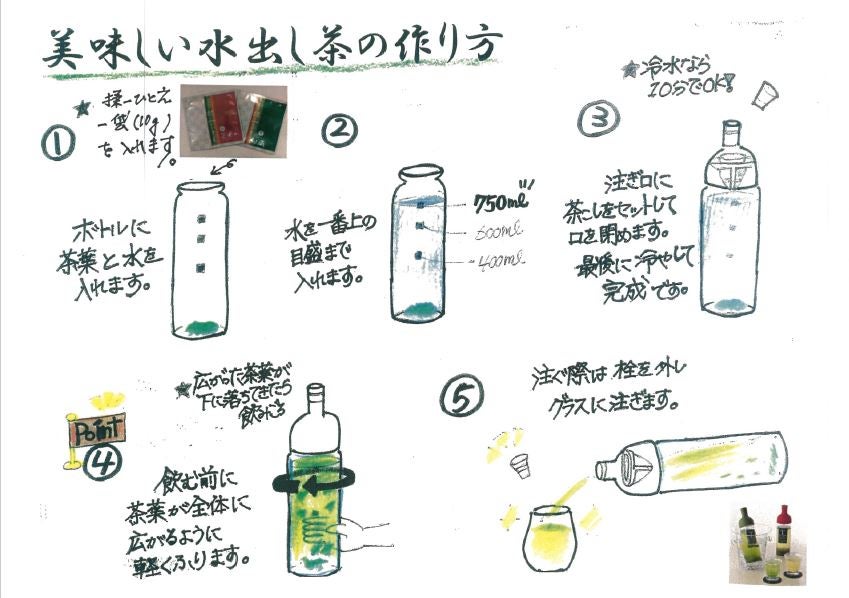 美味しい水出し茶の作り方
①
★揉一ひとえ
一袋(10g)
を入れます。
ボトルに
茶葉と水を
入れます。
②
水を一番上の
目盛まで
入れます。
750ml
600ml
400ml
③
★冷水なら
10分でOK!
注ぎ口に
茶こしをセットして
口を閉めます。
最後に冷やして
完成です。
Point
④
★広がった茶葉が
下に落ちてきたら
飲みごろ
飲む前に
茶葉が全体に
広がるように
軽くふります。
⑤
注ぐ際は栓を外し
グラスに注ぎます。